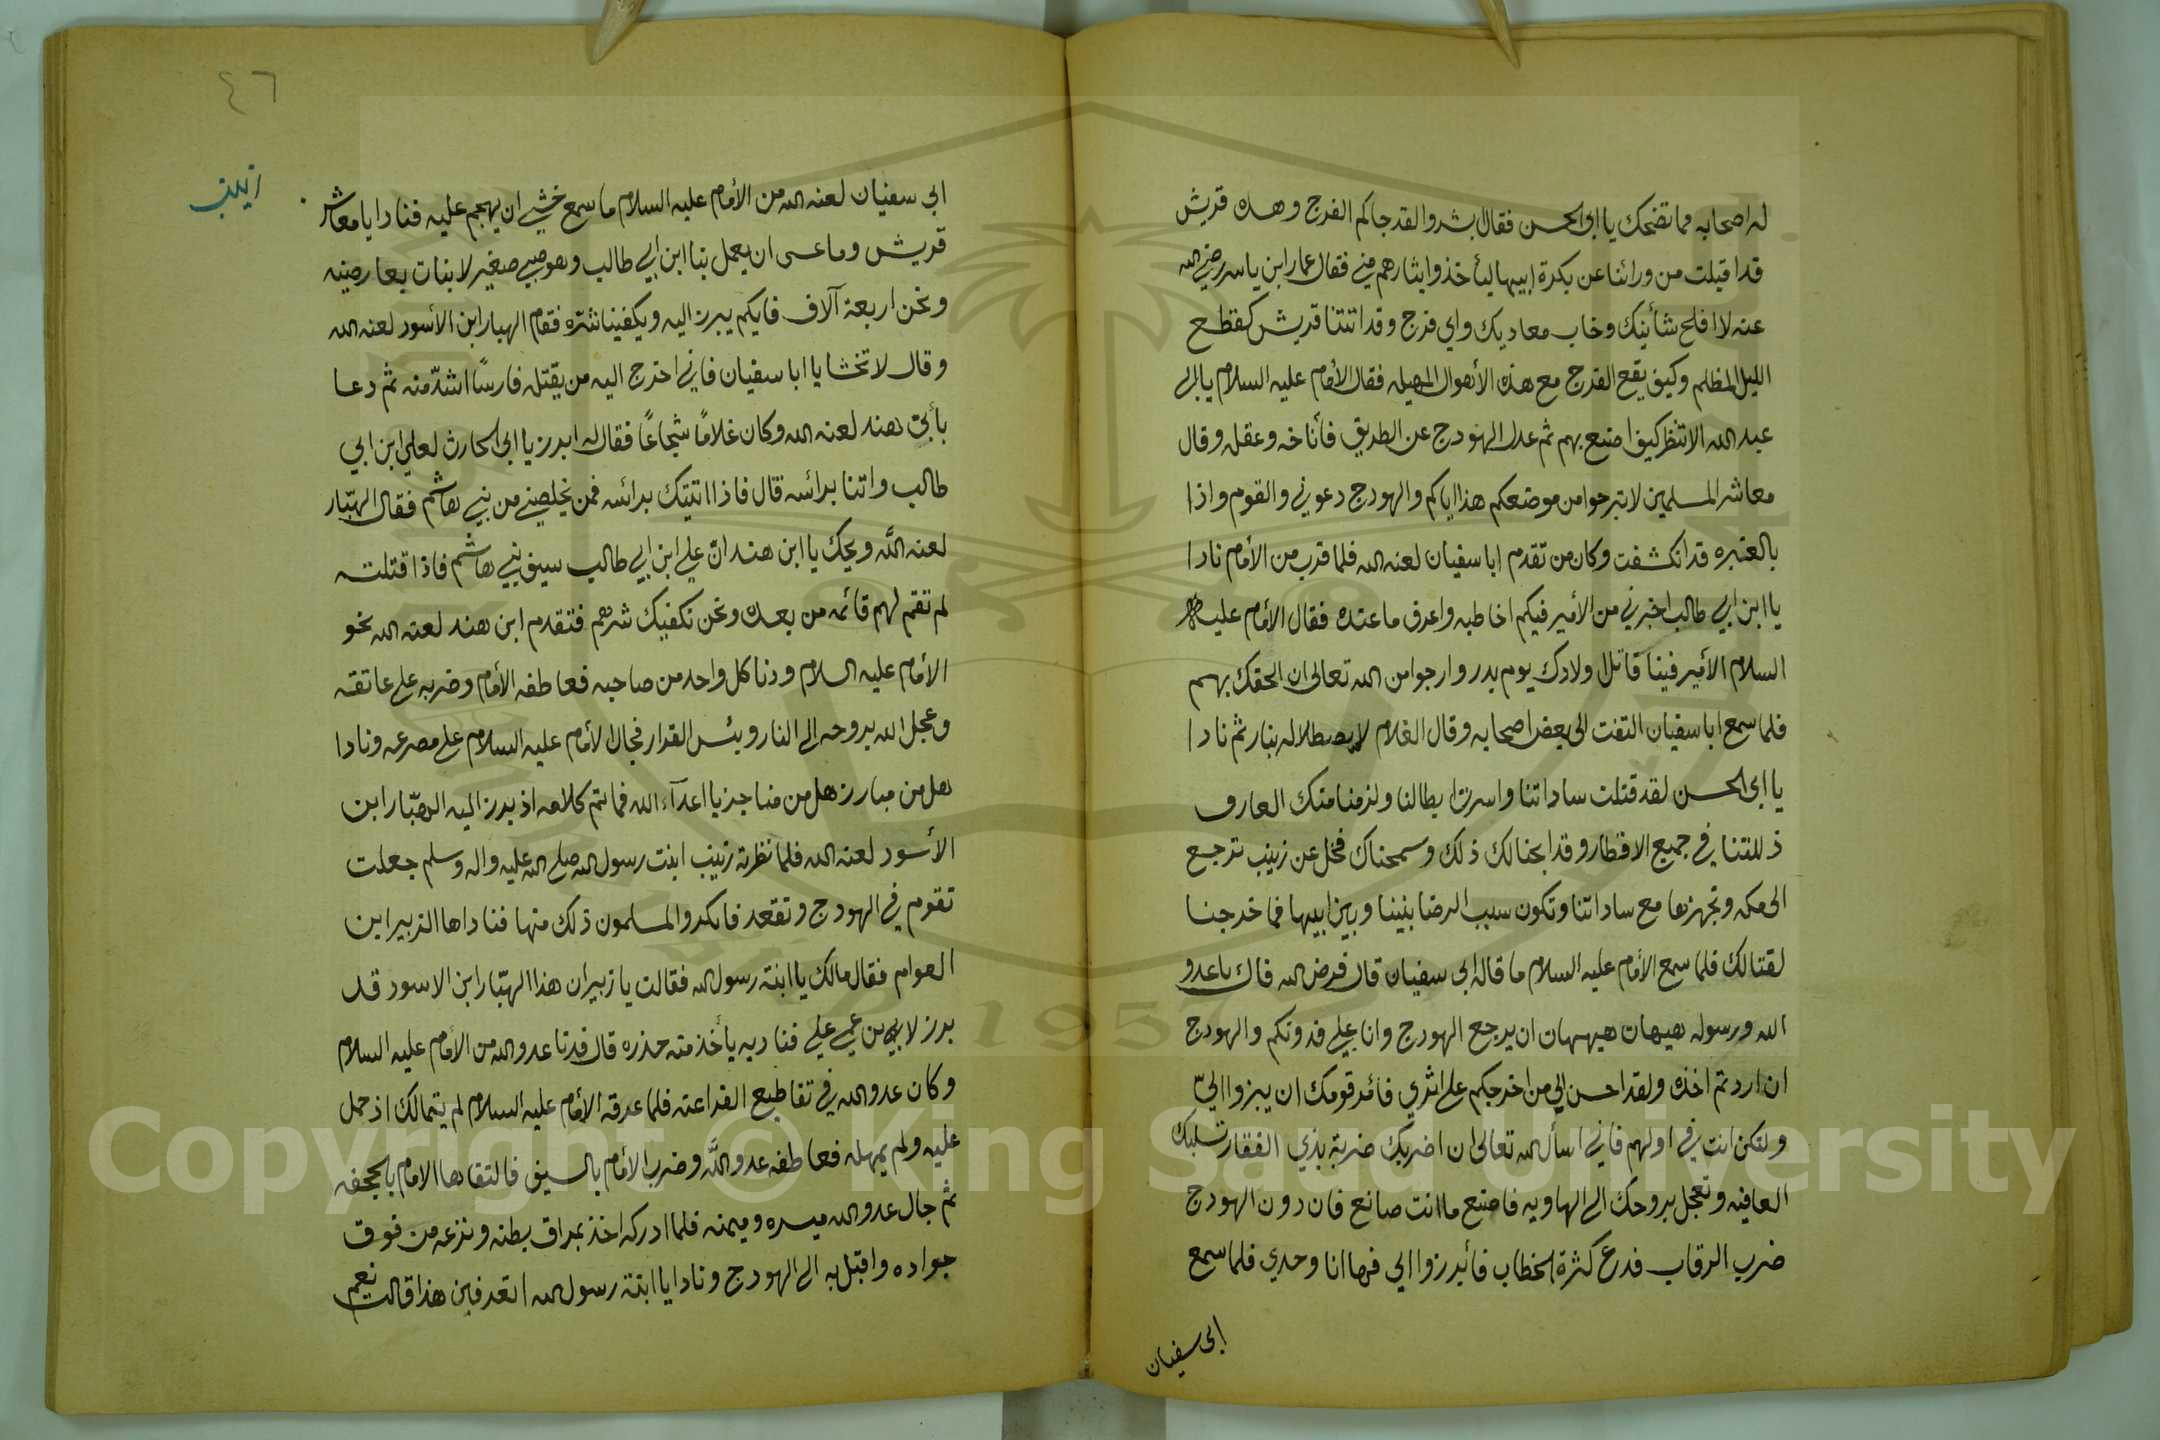 له اصحابه مما تضحك يا ابى الحسن فقال بشروا لقد جاكم الفرج وهذه قريش
قد اقبلت من ورائنا عن بكرة ابيها ليأخذوا بثارهم مني فقال عمار ابن ياسر رضي الله
عنه لا افلح شأنيك وخاب معاديك واي فرج وقد اتتنا قريش كقطع
الليل المظلم وكيف يقع الفرج مع هذه الأهوال المهيله فقال الأمام عليه السلام يا ابى
عبد الله الا تنظر كيف اصنع بهم ثم عدل الهودج عن الطريق فأناخه وعقله وقال
معاشر المسلمين لا تبرحوا من موضعكم هذا اياكم والهودج دعوني والقوم واذا
بالغبره قد انكشفت وكان من تقدم ابا سفيان لعنه الله فلما قرب من الأمام نادا
يا ابن ابي طالب اخبرني من الأمير فيكم اخاطبه واعرف ما عنده فقال الأمام عليه
السلام الأمير فينا قاتل ولادك يوم بدر وارجوا من الله تعالى ان الحقك بهم
فلما سمع ابا سفيان التفت الى بعض اصحابه وقال الغلام لا يصطلا له بنار ثم نادا
يا ابى الحسن لقد قتلت ساداتنا واسرت ابطالنا ولزمنا منك العار وفـ
ذللتنا في جميع الاقطار وقد ابحنا لك ذلك وسمحناك فخل عن زينب ترجع
الى مكه ونجهزها مع ساداتنا وتكون سبب الرضا بيننا وبين ابيها فما خرجنا
لقتالك فلما سمع الأمام عليه السلام ما قاله ابى سفيان قال فرض الله فاك يا عدو
الله ورسوله هيهات هيهات ان يرجع الهودج وانا علي فدونكم والهودج
ان اردتم اخذه ولقد احسن الي من اخرجكم على اثري فائمر قومك ان يبرزوا اليّ
ولتكن انت في اولهم فاني اسأل الله تعالى ان اضربك ضربة بذي الفقار تسلبك
العافيه وتعجل بروحك الى الهاويه فاصنع ما انت صانع فان دون الهودج
ضرب الرقاب فدع كثرة الخطاب فأبرزوا الي فها انا وحدي فلما سمع
ابى سفيان
٤٦
زينب
ابى سفيان لعنه الله من الأمام عليه السلام ما سمع خشي ان يهجم عليه فنادا يا معاشر
قريش وما عسى ان يعمل بنا ابن ابي طالب وهو صبي صغير لا بنات بعارضيه
ونحن اربعة آلاف فايكم يبرز اليه ويكفينا شره فقام الهبار ابن الأسود لعنه الله
وقال لا تخشا يا ابا سفيان فاني اخرج اليه من يقتله فارسًا اشدّ منه ثم دعا
بأبن هند لعنه الله وكان غلامًا شجاعًا فقال له ابرز يا ابى الحارث لعلي ابن ابي
طالب واتنا برائسه قال فاذا اتيتك برائسه فمن يخلصني من بني هاشم فقال الهبّار
لعنه اللّه ويحك يا ابن هند انّ علي ابن ابي طالب سيف بني هاشم فاذا قتلته
لم تقم لهم قائمه من بعده ونحن نكفيك شرهم فتقدم ابن هند لعنه الله نحو
الأمام عليه السلام ودنا كل واحد من صاحبه فعاطفه الأمام وضربه على عاتقه
وعجل الله بروحه الى النار وبئس القرار فجال الأمام عليه السلام على مصرعه ونادا
هل من مبارز هل من مناجز يا اعدآء الله فما تم كلامه اذ برز اليه الهبّار ابن
الأسود لعنه الله فلما نظرته زينب ابنت رسول الله صلى الله عليه واله وسلم جعلت
تقوم في الهودج وتقعد فانكروا المسلمون ذلك منها فناداها الزبير ابن
العوام فقال مالك يا ابنة رسول الله فقالت يا زبير ان هذا الهبّار ابن الاسود قد
برز لابن عمي علي فناديه يأخذ منه حذره قال فدنا عدو الله من الأمام عليه السلام
وكان عدو الله في تقاطيع الفراعنه فلما عرفه الأمام عليه السلام لم يتمالك اذ حمل
عليه ولم يمهله فعاطفه عدو اللّه وضرب الأمام بالسيف فالتقاها الامام بالحجفه
ثم جال عدو الله ميسره وميمنه فلما ادركه اخذ بمراق بطنه ونزعه من فوق
جواده واقبل به الى الهودج ونادا يا ابنة رسول الله اتعرفين هذا قالت نعم
Copyright © King Saud University
1957